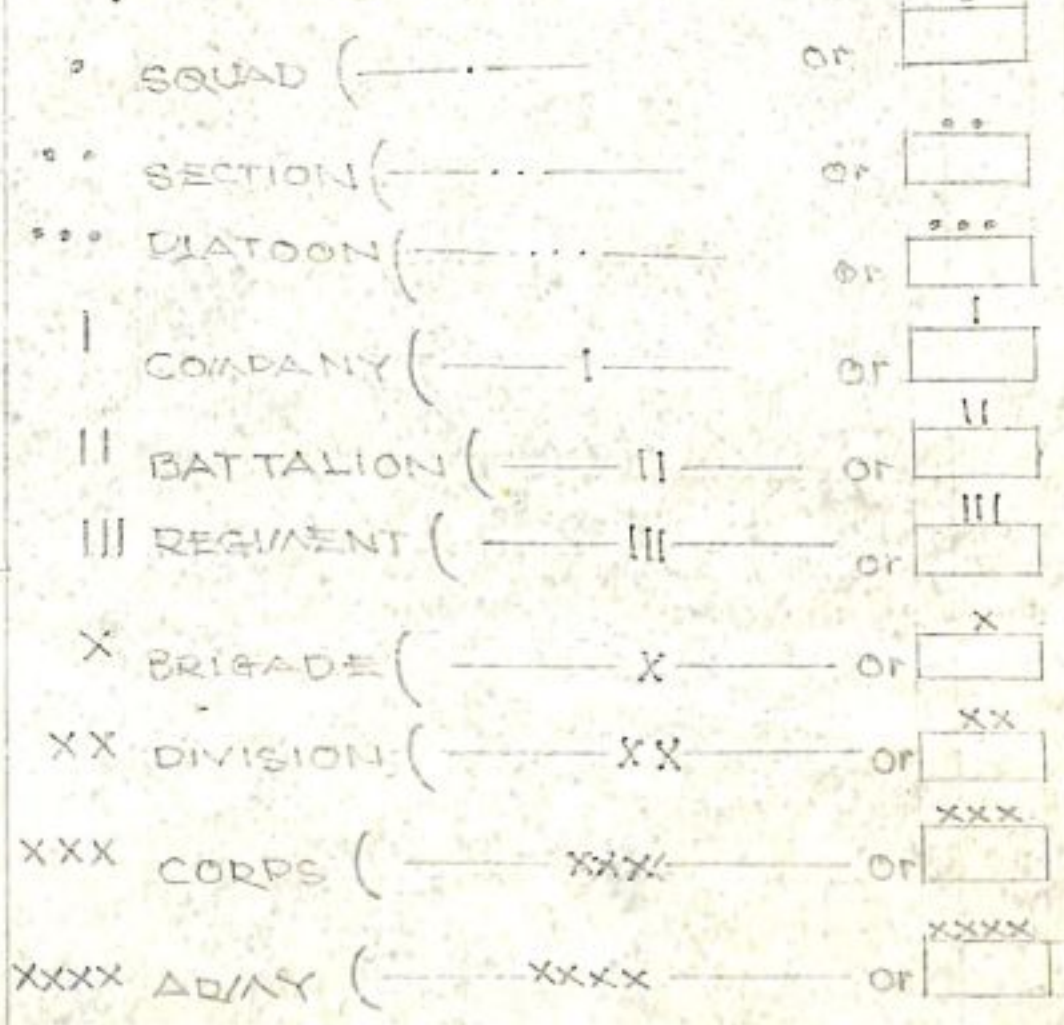 • SQUAD ( — . — or •
•• SECTION ( — .. — or ••
••• PLATOON ( — ... — or •••
I COMPANY ( — I — or I
II BATTALION ( — II — or II
III REGIMENT ( — III — or III
X BRIGADE ( — X — or X
XX DIVISION ( — XX — or XX
XXX CORPS ( — XXX — or XXX
XXXX ARMY ( — XXXX — or XXXX